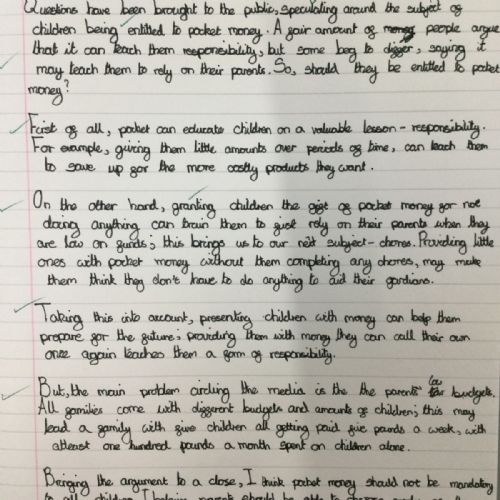 Questions have been brought to the public, speculating around the subject of
children being entitled to pocket money. A fair amount of people argue
that it can teach them responsibility, but some beg to differ, saying it
may teach them to rely on their parents. So, should they be entitled to pocket
money?
First of all, pocket can educate children on a valuable lesson - responsibility.
For example, giving them little amounts over periods of time, can teach them
to save up for the more costly products they want.
On the other hand, granting children the gift of pocket money for not
doing anything can train them to just rely on their parents when they
are low on funds; this brings us to our next subject - chores. Providing little
ones with pocket money without them completing any chores, may make
them think they don't have to do anything to aid their gardians.
Taking this into account, presenting children with money can help them
prepare for the future; providing them with money they can call their own
once again teaches them a form of responsibility.
But, the main problem circling the media is the the parents' low budgets.
All families come with different budgets and amounts of children; this may
lead a family with five children all getting paid five pounds a week, with
atleast one hundred pounds a month spent on children alone.
Bringing the argument to a close, I think pocket money should not be mandatory
to all children. I believe parents should be able to